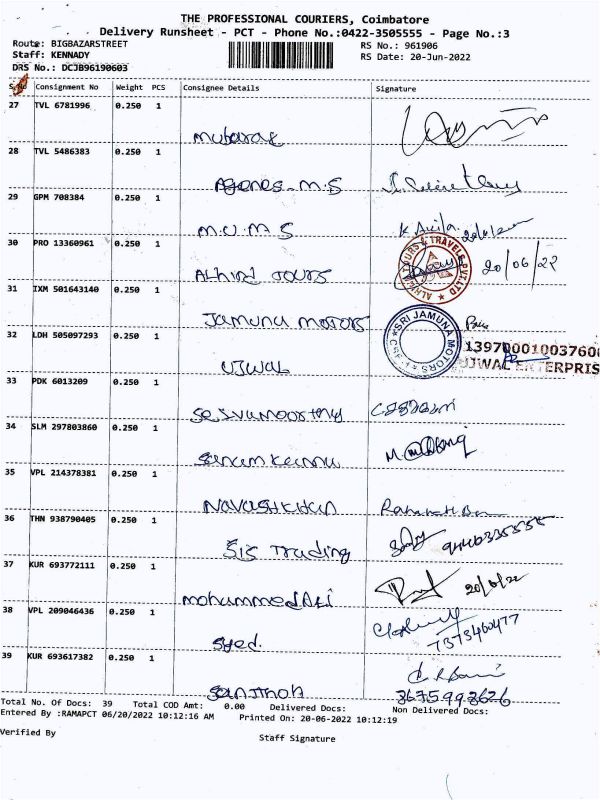 THE PROFESSIONAL COURIERS, Coimbatore
Delivery Runsheet - PCT - Phone No.:0422-3505555 - Page No.:3
Route: BIGBAZARSTREET RS No.: 961906
Staff: KENNADY RS Date: 20-Jun-2022
DRS No.: DCJB96190603
S.No Consignment No Weight PCS Consignee Details Signature
27 TVL 6781996 0.250 1
Mubarak
28 TVL 5486383 0.250 1
Agenes-M.S
29 GPM 708384 0.250 1
M.U.M S
30 PRO 13360961 0.250 1
ALHIND TOURS 20/06/22
31 IXM 501643140 0.250 1
Jamuna motors SRI JAMUNA MOTORS
32 LDH 505097293 0.250 1
UJWAL UJWAL ENTERPRIS
33 PDK 6013209 0.250 1
34 SLM 297803860 0.250 1
35 VPL 214378381 0.250 1
Navashkhan
36 THN 938790405 0.250 1
SIS Trading
37 KUR 693772111 0.250 1
mohammed Ali 20/6/22
38 VPL 209046436 0.250 1
Syed. 7373460477
39 KUR 693617382 0.250 1
Total No. Of Docs: 39 Total COD Amt: 0.00 Delivered Docs: Non Delivered Docs:
Entered By :RAMAPCT 06/20/2022 10:12:16 AM Printed On: 20-06-2022 10:12:19
Verified By
Staff Signature